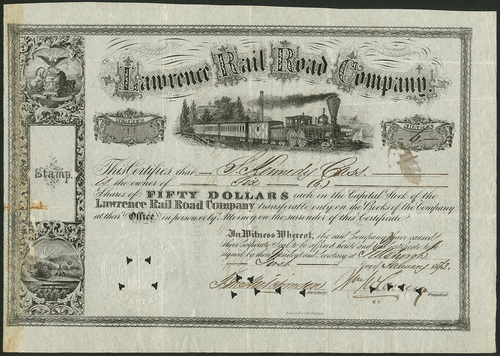 Lawrence Rail Road Company.
NUMBER
SHARES
11
This Certifies that S. Kennedy Cass
is the owner of Six (6)
Shares of FIFTY DOLLARS each in the Capital Stock of the
Lawrence Rail Road Company transferable only on the Books of the Company
at their Office, in person or by Attorney on the surrender of this Certificate.
Stamp.
In Witness Whereof, the said Company have caused
their corporate Seal to be affixed hereto and this certificate to be
signed by their President and Secretary at Pittsburgh
February
Secretary
President